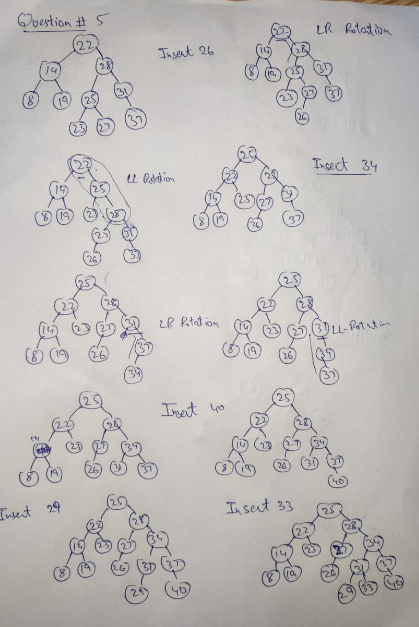 Question # 5
22
14 28
8 19 25 31
23 27 37
Insert 26
LR Rotation
22
14 28
8 19 25 31
23 27 37
26
22
14 25
8 19 23 28
27 31
26 37
LL Rotation
25
22 28
14 23 27 31
8 19 26 37
Insert 34
25
22 28
14 23 27 31
8 19 26 37
34
LR Rotation
25
22 28
14 23 27 31
8 19 26 34
37
LL-Rotation
25
22 28
14 23 27 34
8 19 26 31 37
Insert 40
25
22 28
14 23 27 34
8 19 26 31 37
40
Insert 29
25
22 28
14 23 27 34
8 19 26 31 37
29 40
Insert 33
25
22 28
14 23 27 34
8 19 26 31 37
29 33 40